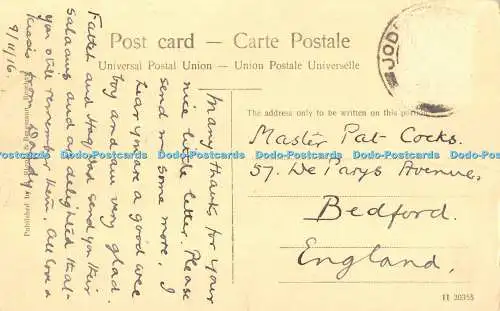 Post card — Carte Postale
Universal Postal Union — Union Postale Universelle
JOD
The address only to be written on this portion.
Master Pat Cocks.
57. De Parys Avenue,
Bedford.
England,
II 20355
Many thanks for your
nice little letter. Please
send me some more. I
hear you are a good wee
boy and am very glad.
Fatteh and send you their
salaams and are delighted that
you still remember them. All love &
kisses from Daddy
9/11/16.
Dodo-Postcards Dodo-Postcards Dodo-Postcards Dodo-Postcards Dodo-Postcards